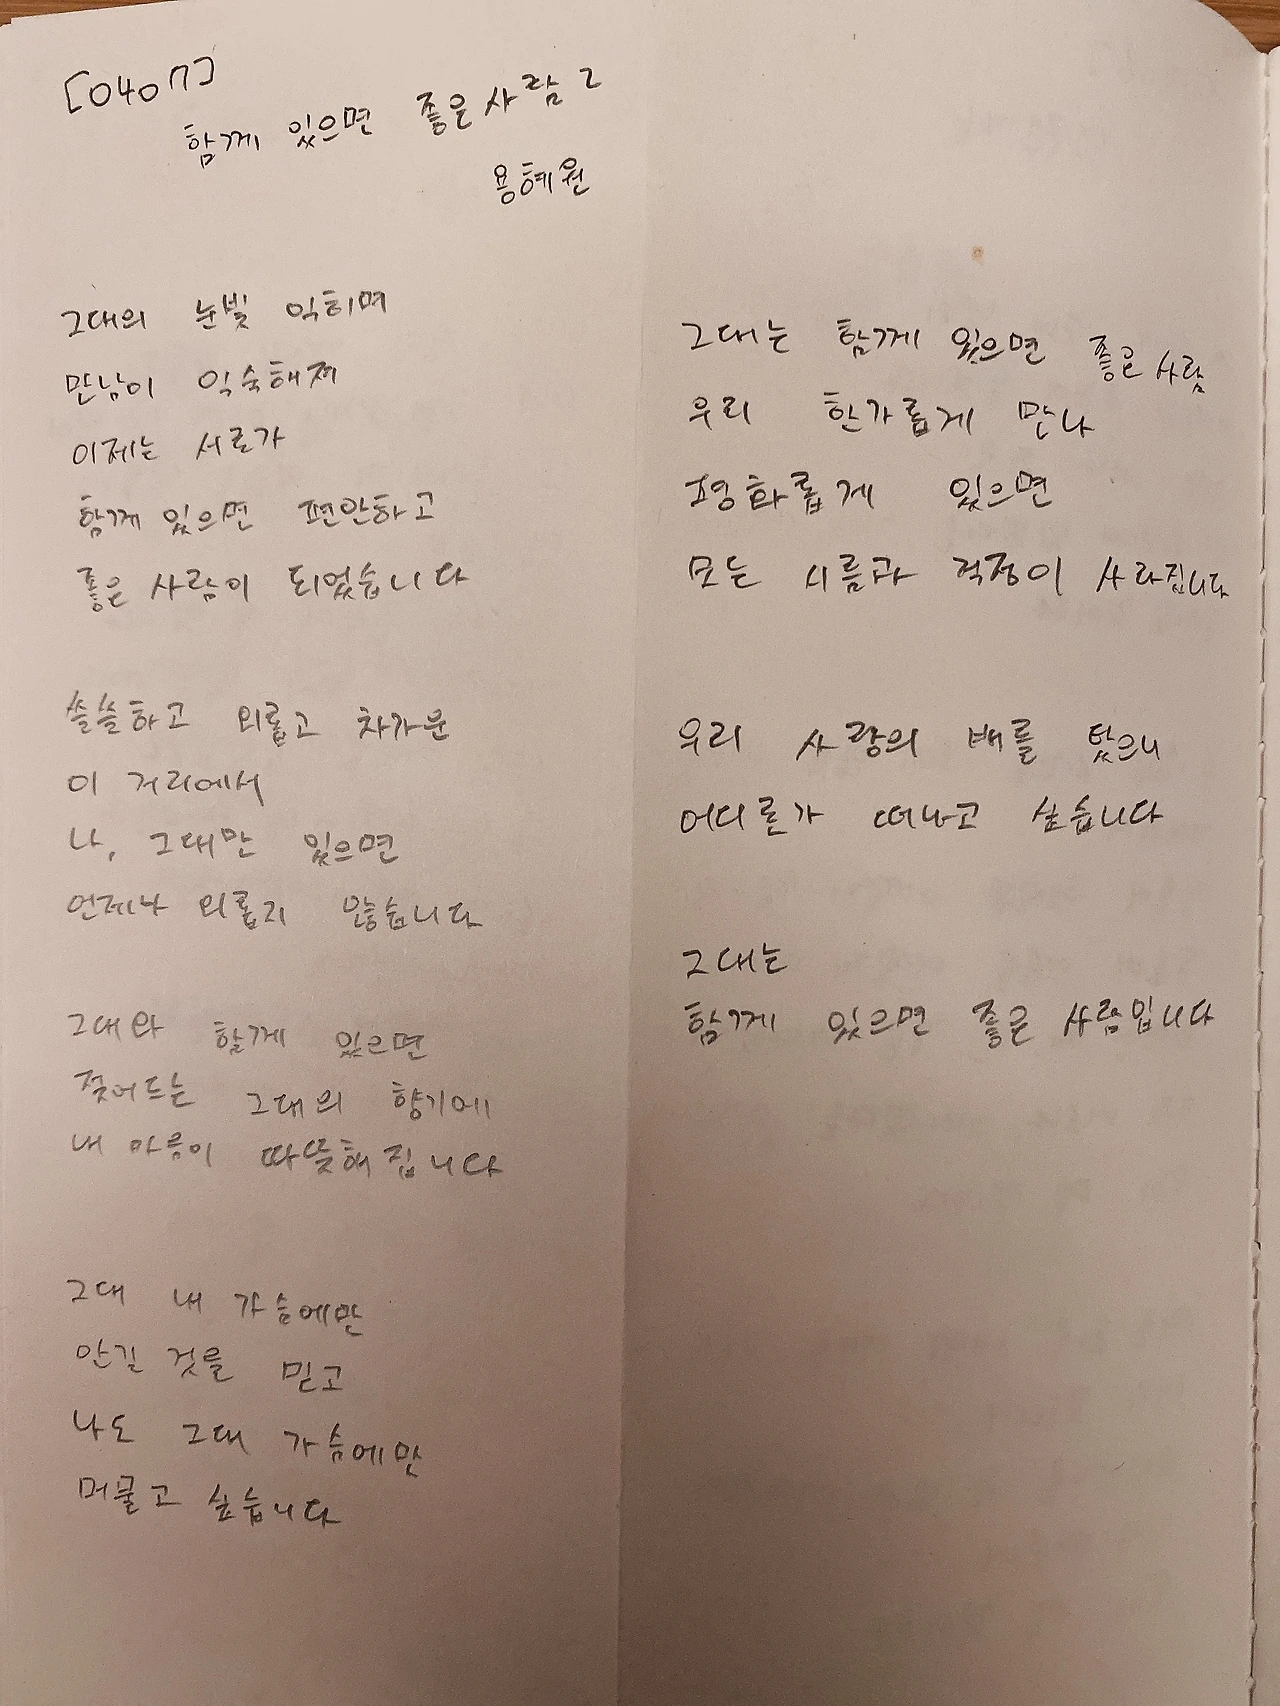 [0407]
함께 있으면 좋은 사람 2
용혜원
그대의 눈빛 익히며
만남이 익숙해져
이제는 서로가
함께 있으면 편안하고
좋은 사람이 되었습니다
쓸쓸하고 외롭고 차가운
이 거리에서
나, 그대만 있으면
언제나 외롭지 않습니다
그대와 함께 있으면
젖어드는 그대의 향기에
내 마음이 따뜻해집니다
그대 내 가슴에만
안길 것을 믿고
나도 그대 가슴에만
머물고 싶습니다
그대는 함께 있으면 좋은 사람
우리 한가롭게 만나
평화롭게 있으면
모든 시름과 걱정이 사라집니다
우리 사랑의 배를 탔으니
어디론가 떠나고 싶습니다
그대는
함께 있으면 좋은 사람입니다